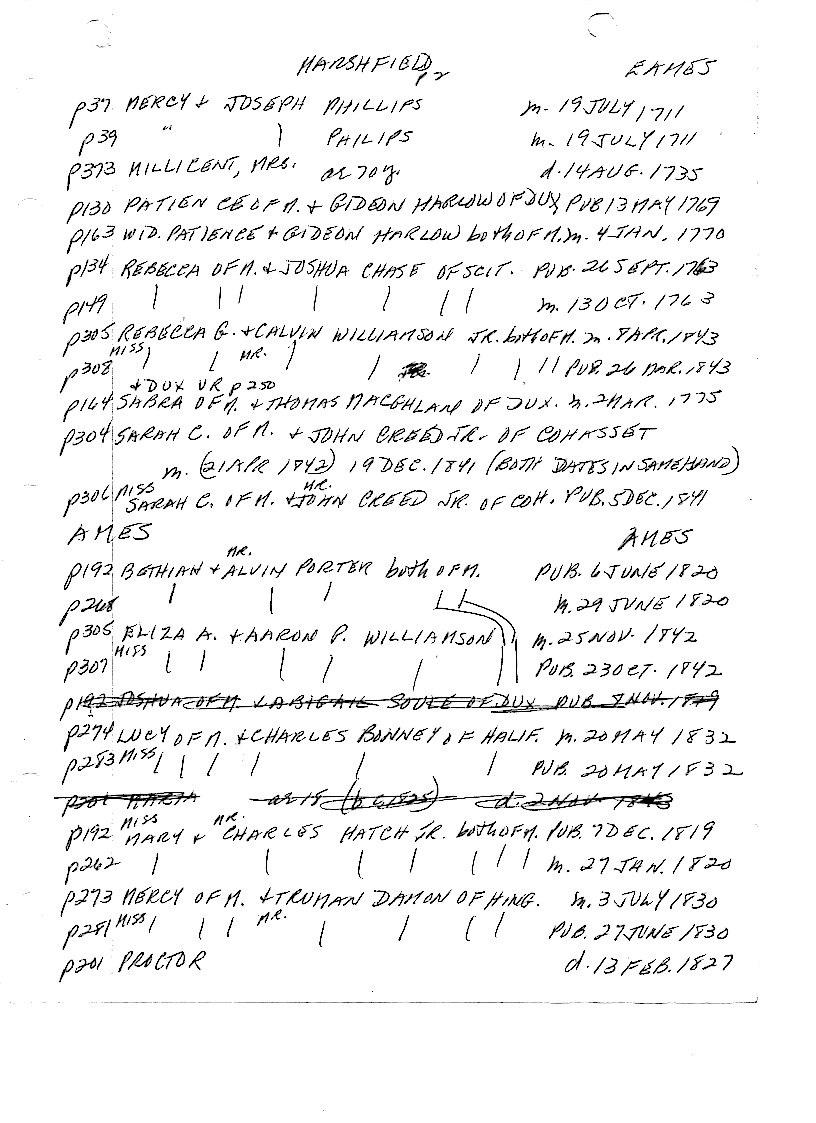 MARSHFIELD p2 EAMES
p37 MERCY & JOSEPH PHILLIPS m. 19 JULY 1711
p39 " | PHILIPS m. 19 JULY 1711
p373 MILLICENT, MRS. ae 70 y. d. 14 AUG. 1735
p130 PATIENCE OF M. & GIDEON HARLOW OF DUX PUB 13 MAY 1769
p163 WID. PATIENCE & GIDEON HARLOW both OF M. m. 4 JAN. 1770
p134 REBECCA OF M. & JOSHUA CHASE OF SCIT. PUB. 26 SEPT. 1763
p149 | | | | | | | m. 13 OCT. 1763
p305 REBECCA G. & CALVIN WILLIAMSON JR. both OF M. m. 8 APR. 1843
p308 MISS | | MR. | | | | | | PUB. 26 MAR. 1843
& DUX VR p250
p164 SABRA OF M. & THOMAS MACGHLAND OF DUX. m. 2 MAR. 1775
p304 SARAH C. OF M. & JOHN CREED JR. OF COHASSET
m. (21 APR 1842) 19 DEC. 1841 (BOTH DATES IN SAME HAND)
p306 MISS SARAH C. OF M. & MR. JOHN CREED JR. OF COH. PUB. 5 DEC. 1841
AMES AMES
p192 BETHIAH & MR. ALVIN PORTER both OF M. PUB. 6 JUNE 1820
p268 | | | | | m. 29 JUNE 1820
p305 ELIZA A. & AARON P. WILLIAMSON m. 25 NOV. 1842
p307 MISS | | | | | PUB. 23 OCT. 1842
p192 JOSHUA OF M & ABIGAIL SOULE OF DUX PUB 8 NOV. 1829
p274 LUCY OF M. & CHARLES BONNEY OF HALIF. m. 20 MAY 1832
p283 MISS | | | | | | PUB. 20 MAY 1832
p201 MARIA ae 18 (b c1825) d. 2 NOV. 1843
p192 MISS MARY & MR. CHARLES HATCH JR. both OF M. PUB. 7 DEC. 1819
p262 | | | | | | | m. 27 JAN. 1820
p273 MERCY OF M. & TRUMAN DAMON OF HING. m. 3 JULY 1830
p281 MISS | | | MR. | | | | PUB. 27 JUNE 1830
p201 PROCTOR d. 13 FEB. 1827